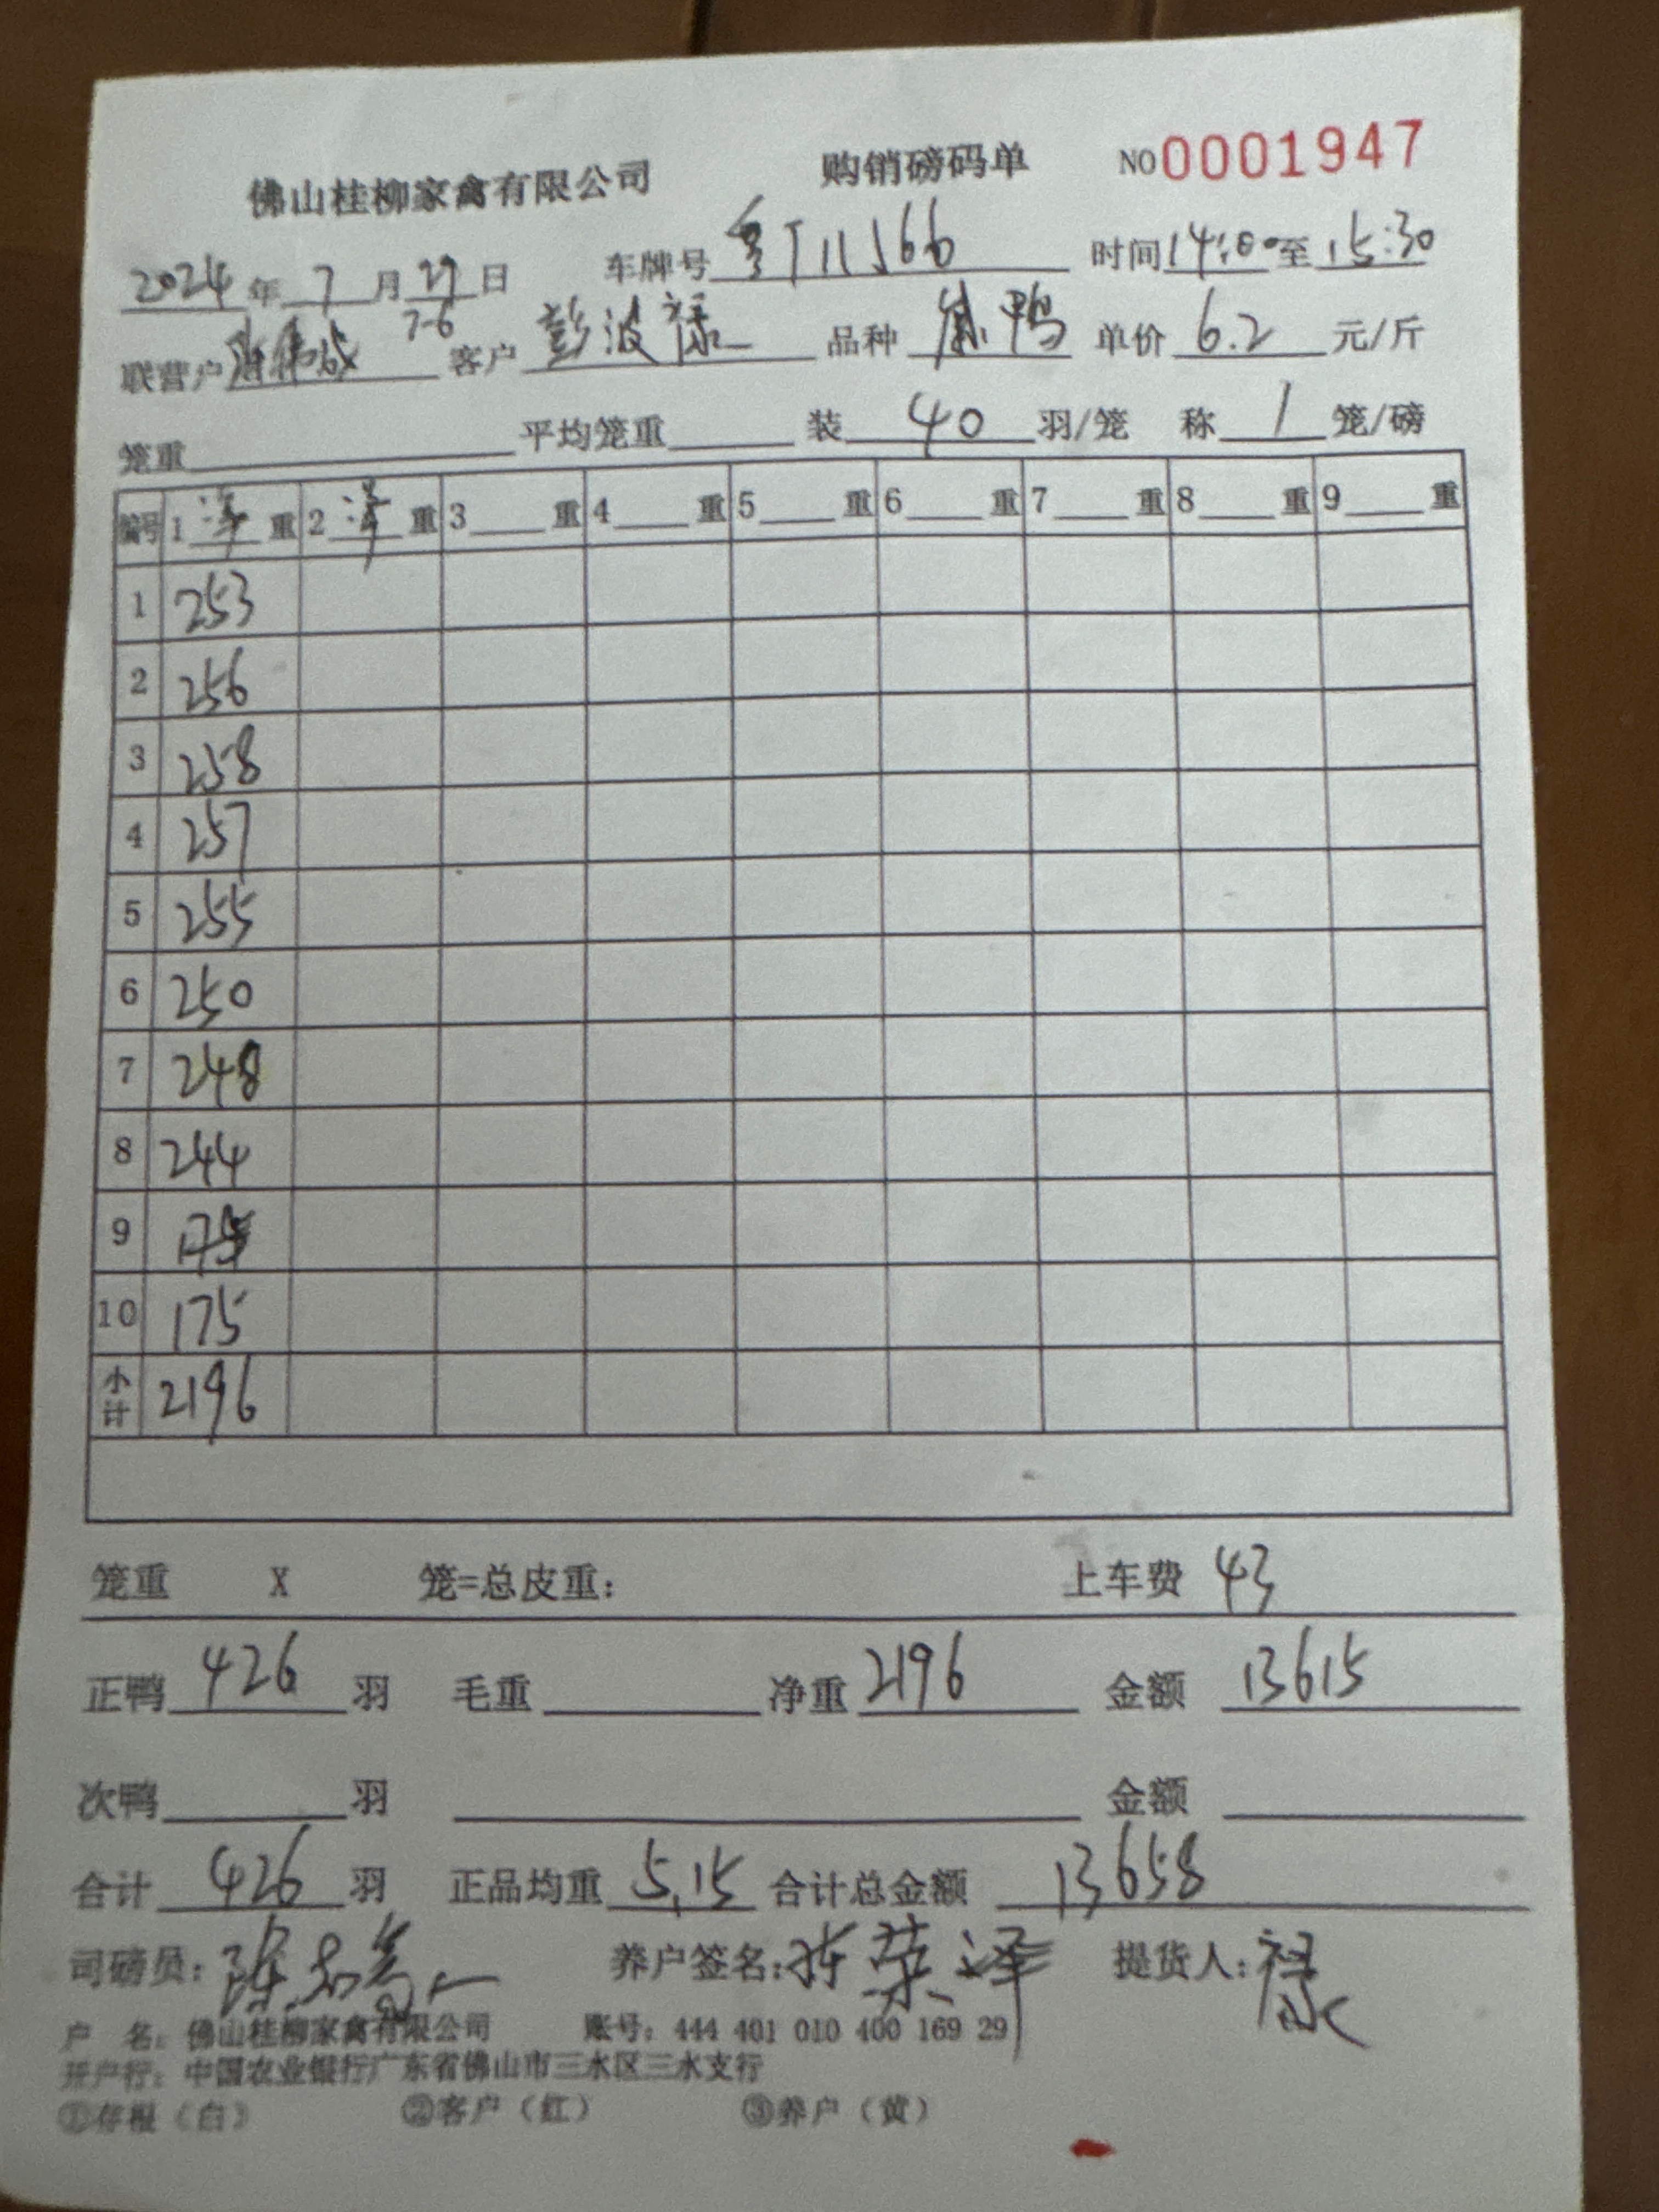 佛山桂柳家禽有限公司 购销磅码单 NO 0001947
2024 年 7 月 29 日 车牌号 粤T11J66 时间 14:00 至 15:30
7-6
联营户 客户 彭波禄 品种 鸭 单价 6.2 元/斤
笼重 平均笼重 装 40 羽/笼 称 1 笼/磅
编号 1 净 重 2 净 重 3 重 4 重 5 重 6 重 7 重 8 重 9 重
1 253
2 256
3 258
4 257
5 255
6 250
7 248
8 244
9
10 175
小计 2196
笼重 X 笼=总皮重: 上车费 43
正鸭 426 羽 毛重 净重 2196 金额 13615
次鸭 羽 金额
合计 426 羽 正品均重 5.15 合计总金额 13658
司磅员: 陈 养户签名: 荣泽 提货人: 禄
户 名: 佛山桂柳家禽有限公司 账号: 444 401 010 400 169 29
开户行: 中国农业银行广东省佛山市三水区三水支行
①存根(白) ②客户(红) ③养户(黄)